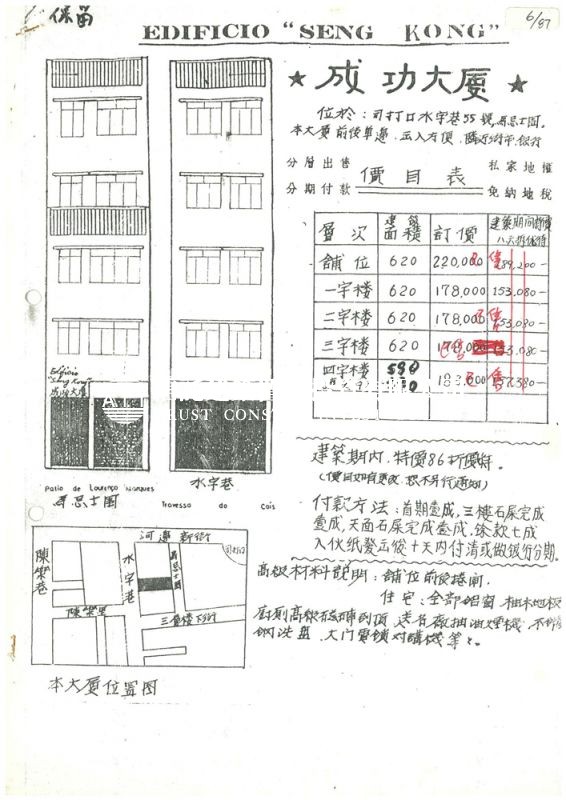 保留
6/87
EDIFICIO "SENG KONG"
★ 成功大廈 ★
位於：司打口水字巷55號
本大廈前後單邊，出入方便，
分層出售
分期付款
價目表
私家地權
免納地稅
層次 建築面積 訂價 建築期間特價
舖位 620 220,000 189,200-
一字楼 620 178,000 153,080-
二字楼 620 178,000 153,080-
三字楼 620 178,000 153,080-
四字楼 590 183,000 157,380-
已售
Edificio
"Seng Kong"
成功大廈
TRUST CONS
Patio de Lourenço Marques
Travessa do Cais
水字巷
建築期內，特價86折優待。
(價目如有更改，恕不另行通知)
付款方法：首期壹成，三樓石屎完成
壹成，天面石屎完成壹成，餘款七成
入伙紙發出後十天內付清或做銀行分期。
高級材料說明：舖位前後捲閘。
住宅：全部鋁窗，柚木地板
廚厠高級磁磚到頂，送名廠抽油煙機，不銹
鋼洗盆，大门電鎖对講機等。
河邊新街
陳樂巷
水字巷
司打口
陳樂里
三層楼下街
本大廈位置图